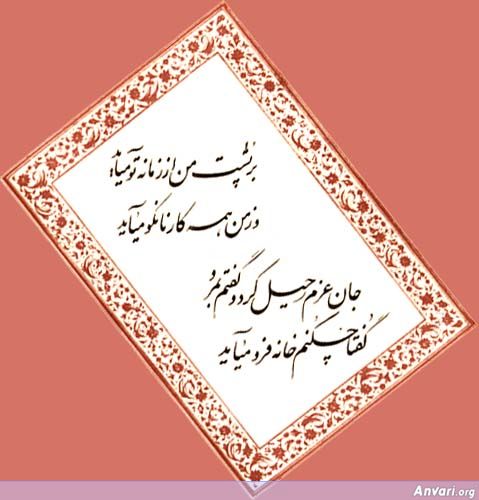 بر پشت من از زمانه تو میآید
وزمن همه کار نانکو میآید
جان عزم رحیل کرد و گفتم بمرو
گفتا چکنم خانه فرو میآید
Anvari.org